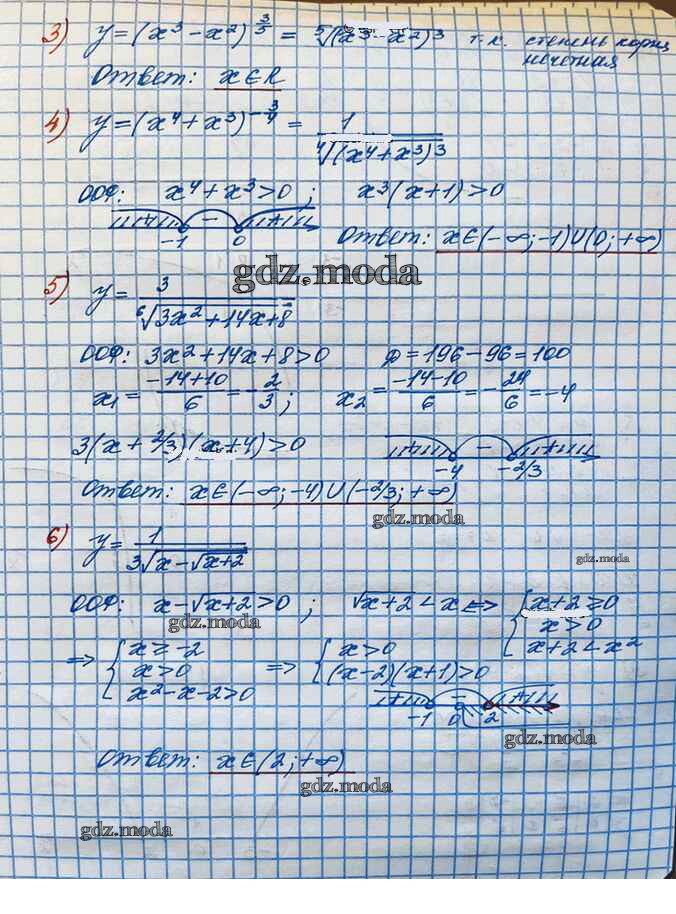 3) y=(x³-x²)^(3/5) = ⁵√(x³-x²)³ т.к. степень корня
нечетная
Ответ: x∈R
4) y=(x⁴+x³)^(-3/4) = 1/⁴√(x⁴+x³)³
ООФ: x⁴+x³>0; x³(x+1)>0
+ - +
-1 0
Ответ: x∈(-∞;-1)∪(0;+∞)
gdz.moda
5) y= 3/⁶√(3x²+14x+8)
ООФ: 3x²+14x+8>0 D=196-96=100
x₁=(-14+10)/6=-2/3; x₂=(-14-10)/6=-24/6=-4
3(x+2/3)(x+4)>0
+ - +
-4 -2/3
Ответ: x∈(-∞;-4)∪(-2/3;+∞)
gdz.moda
6) y= 1/3√(x-√(x+2))
gdz.moda
ООФ: x-√x+2>0; √x+2<x⇔ { x+2≥0
x>0
x+2<x²
gdz.moda
⇒ { x≥-2
x>0
x²-x-2>0
⇒ { x>0
(x-2)(x+1)>0
+ - +
-1 0 2
gdz.moda
Ответ: x∈(2;+∞)
gdz.moda
gdz.moda